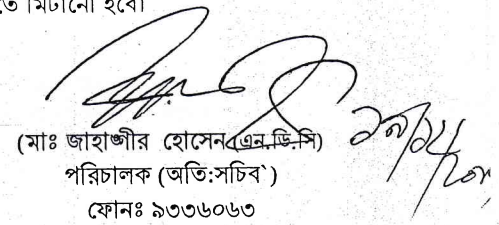 তে মিটানো হবে।
(মাঃ জাহাঙ্গীর হোসেন(এন.ডি.সি)
পরিচালক (অতি:সচিব`)
ফোনঃ ৯৩৩৬০৬৩